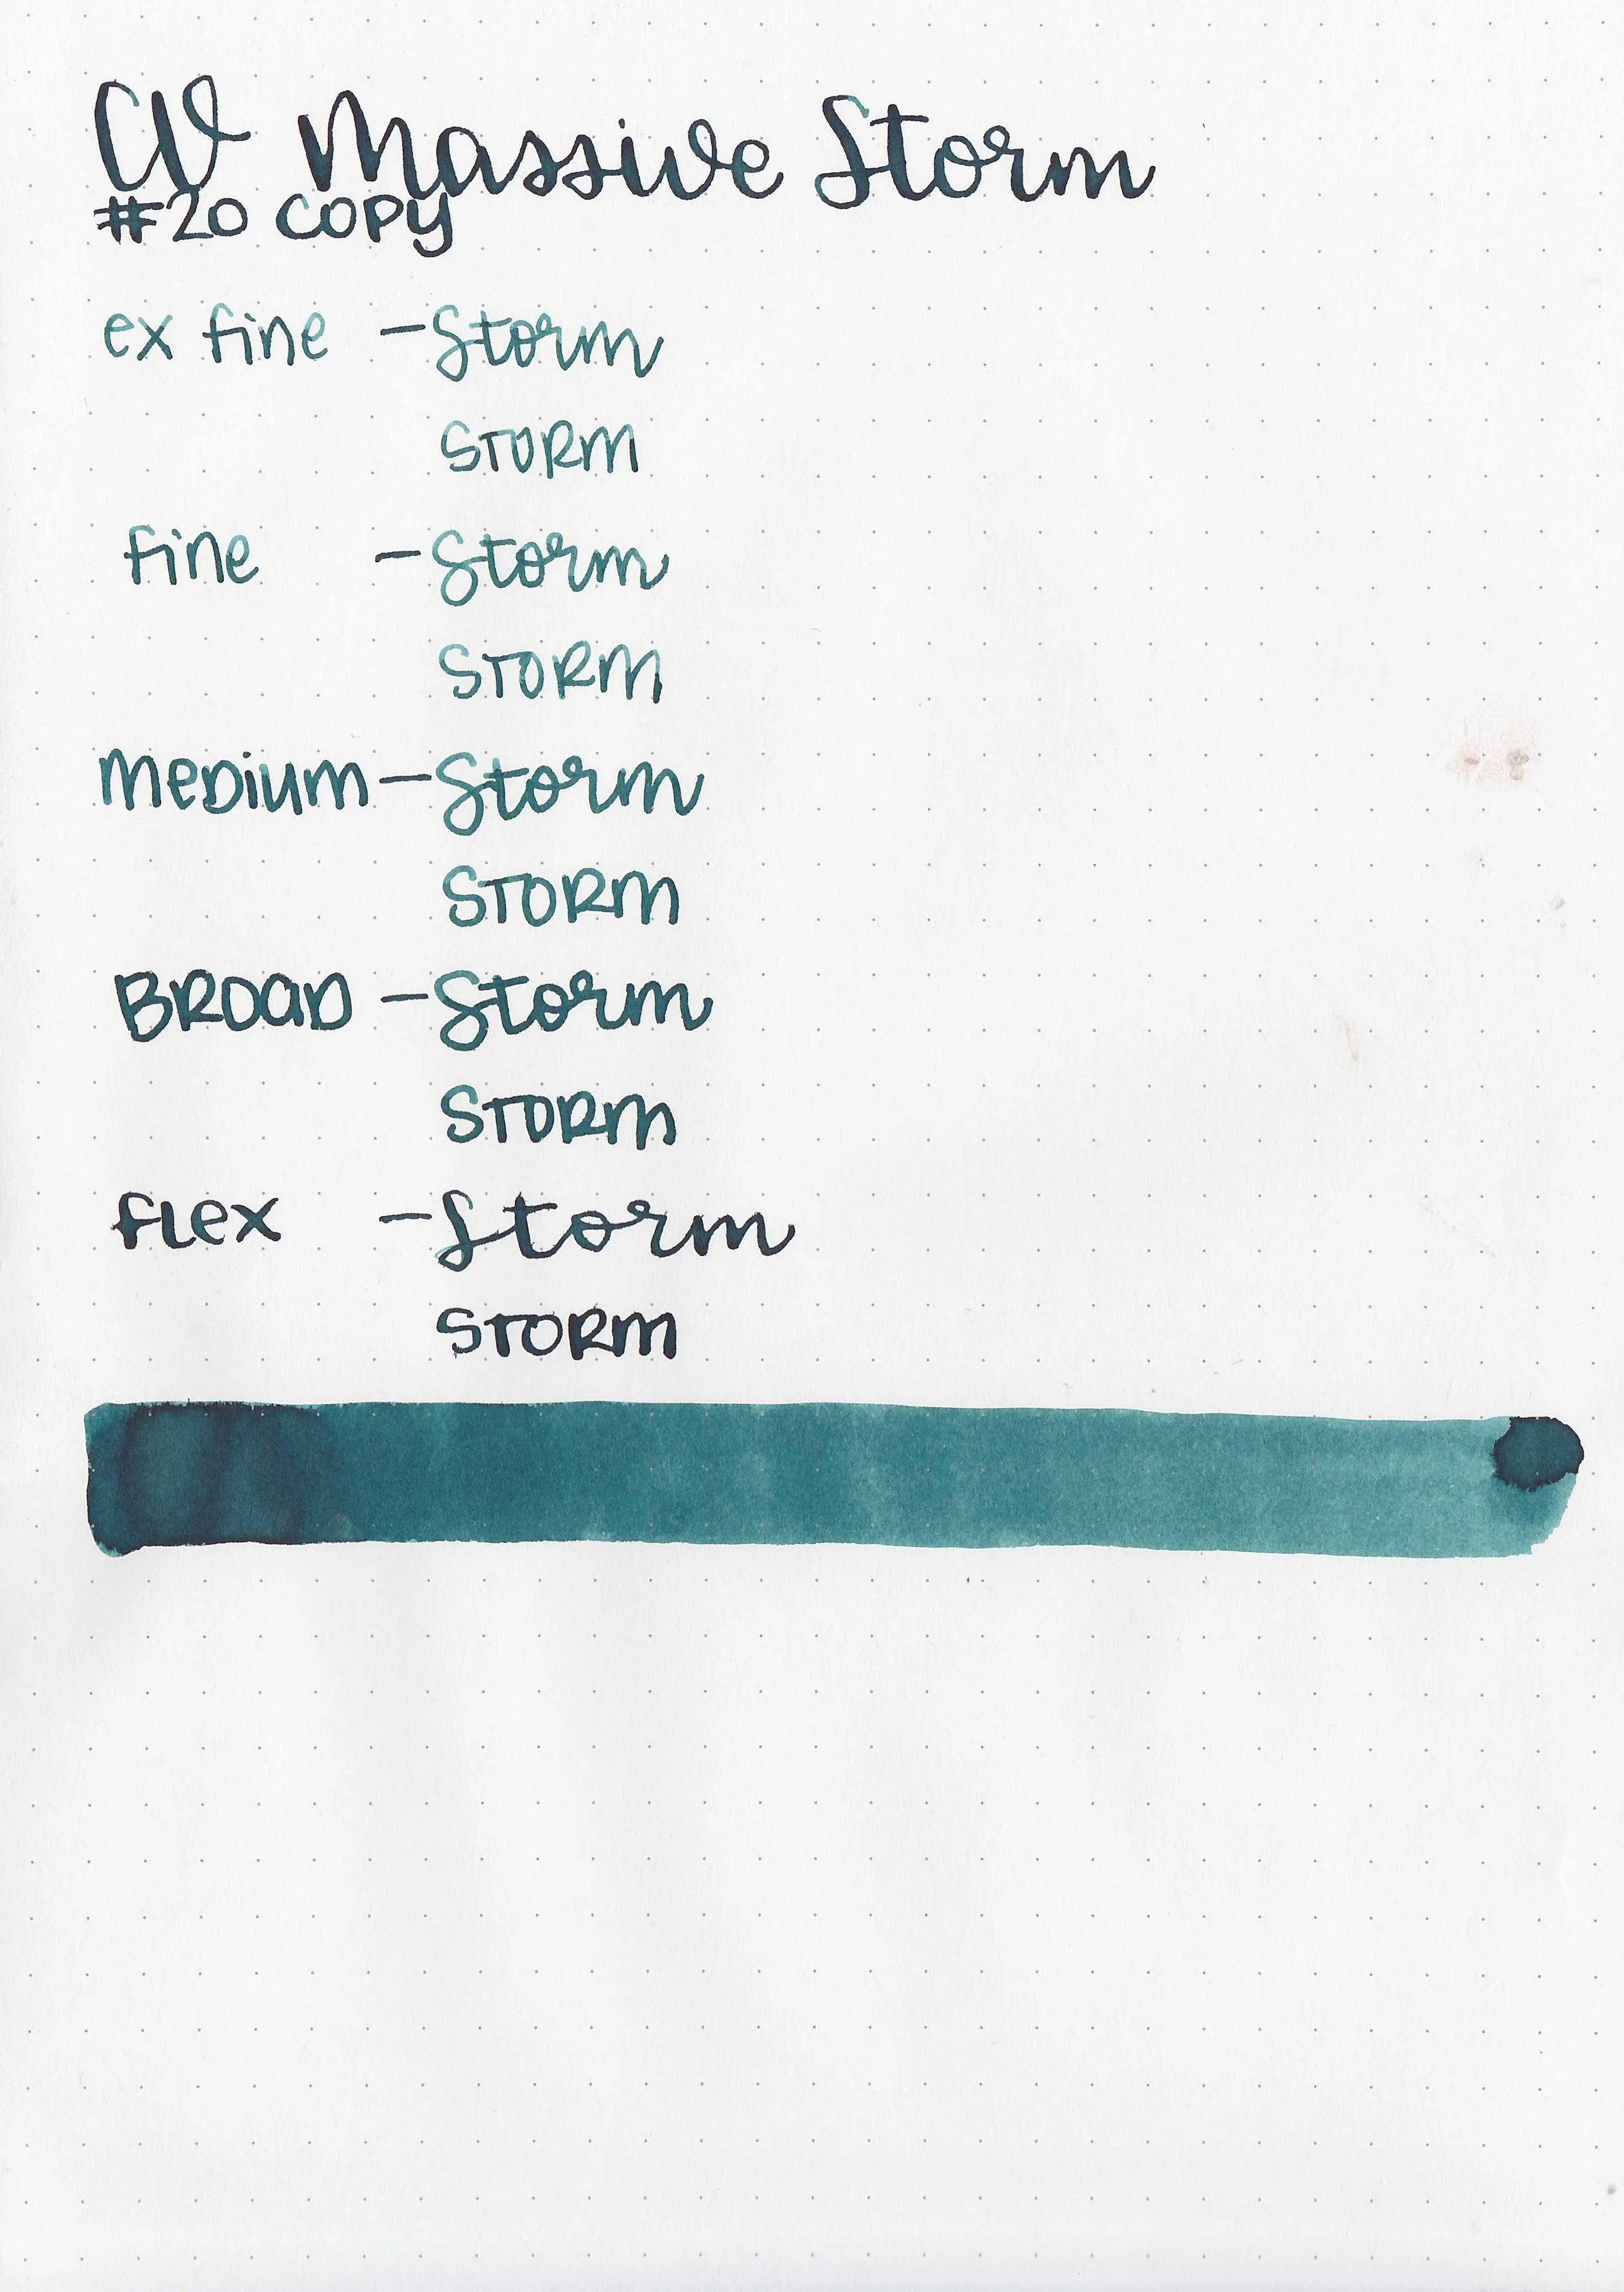 CV Massive Storm
#20 COPY
ex fine - Storm
STORM
fine - Storm
STORM
meDium - Storm
STORM
BROaD - Storm
STORM
fLex - Storm
STORM